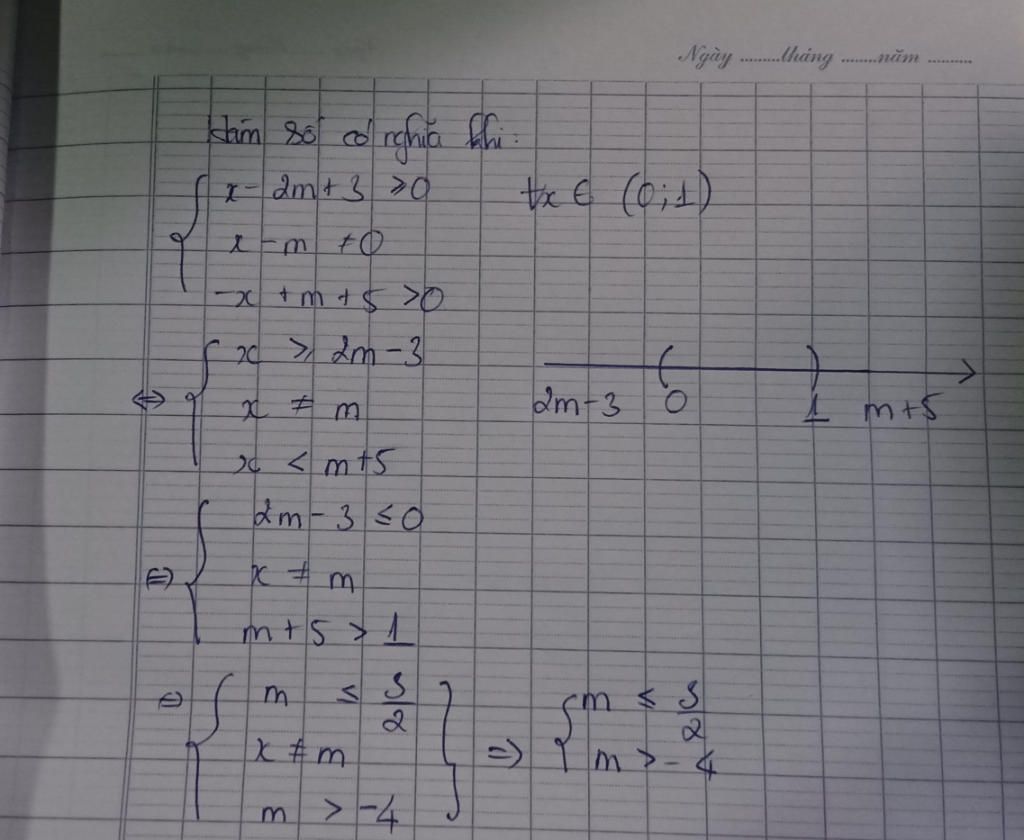 Ngày .........tháng ........năm ..........
Hàm số có nghĩa khi:
x - 2m + 3 ≥ 0 ∀x ∈ (0; 1)
x - m ≠ 0
-x + m + 5 > 0
⇔ x ≥ 2m - 3
x ≠ m
x < m + 5
2m - 3 0 1 m + 5
⇔ 2m - 3 ≤ 0
x ≠ m
m + 5 > 1
⇔ m ≤ 3/2
x ≠ m
m > -4
⇒ m ≤ 3/2
m > -4